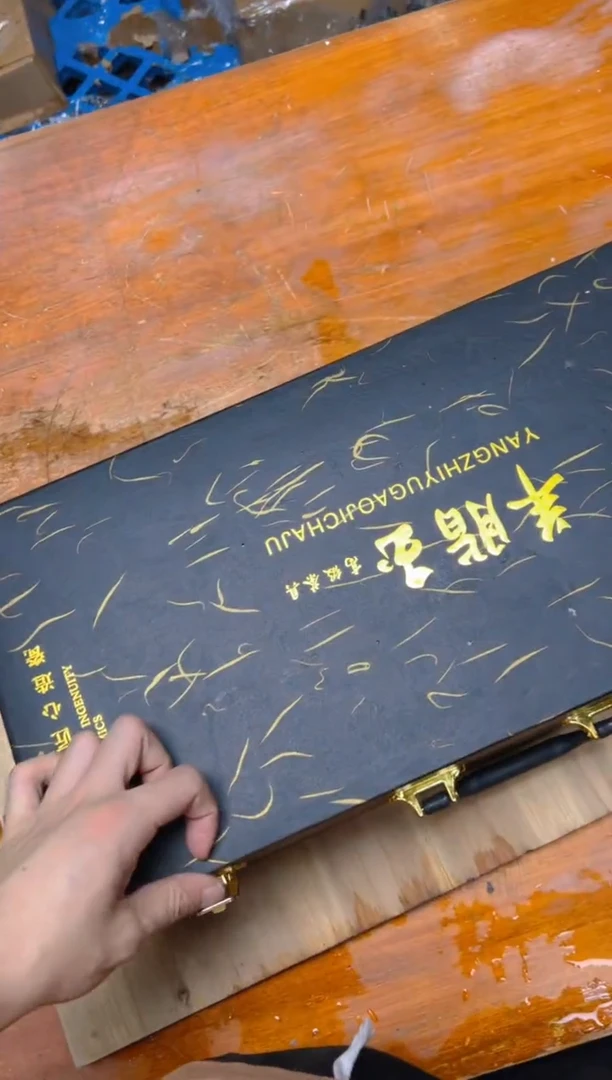 YANGZHIYUGAOJICHAJU
羊脂玉
高级茶具
匠心造瓷
INGENUITY